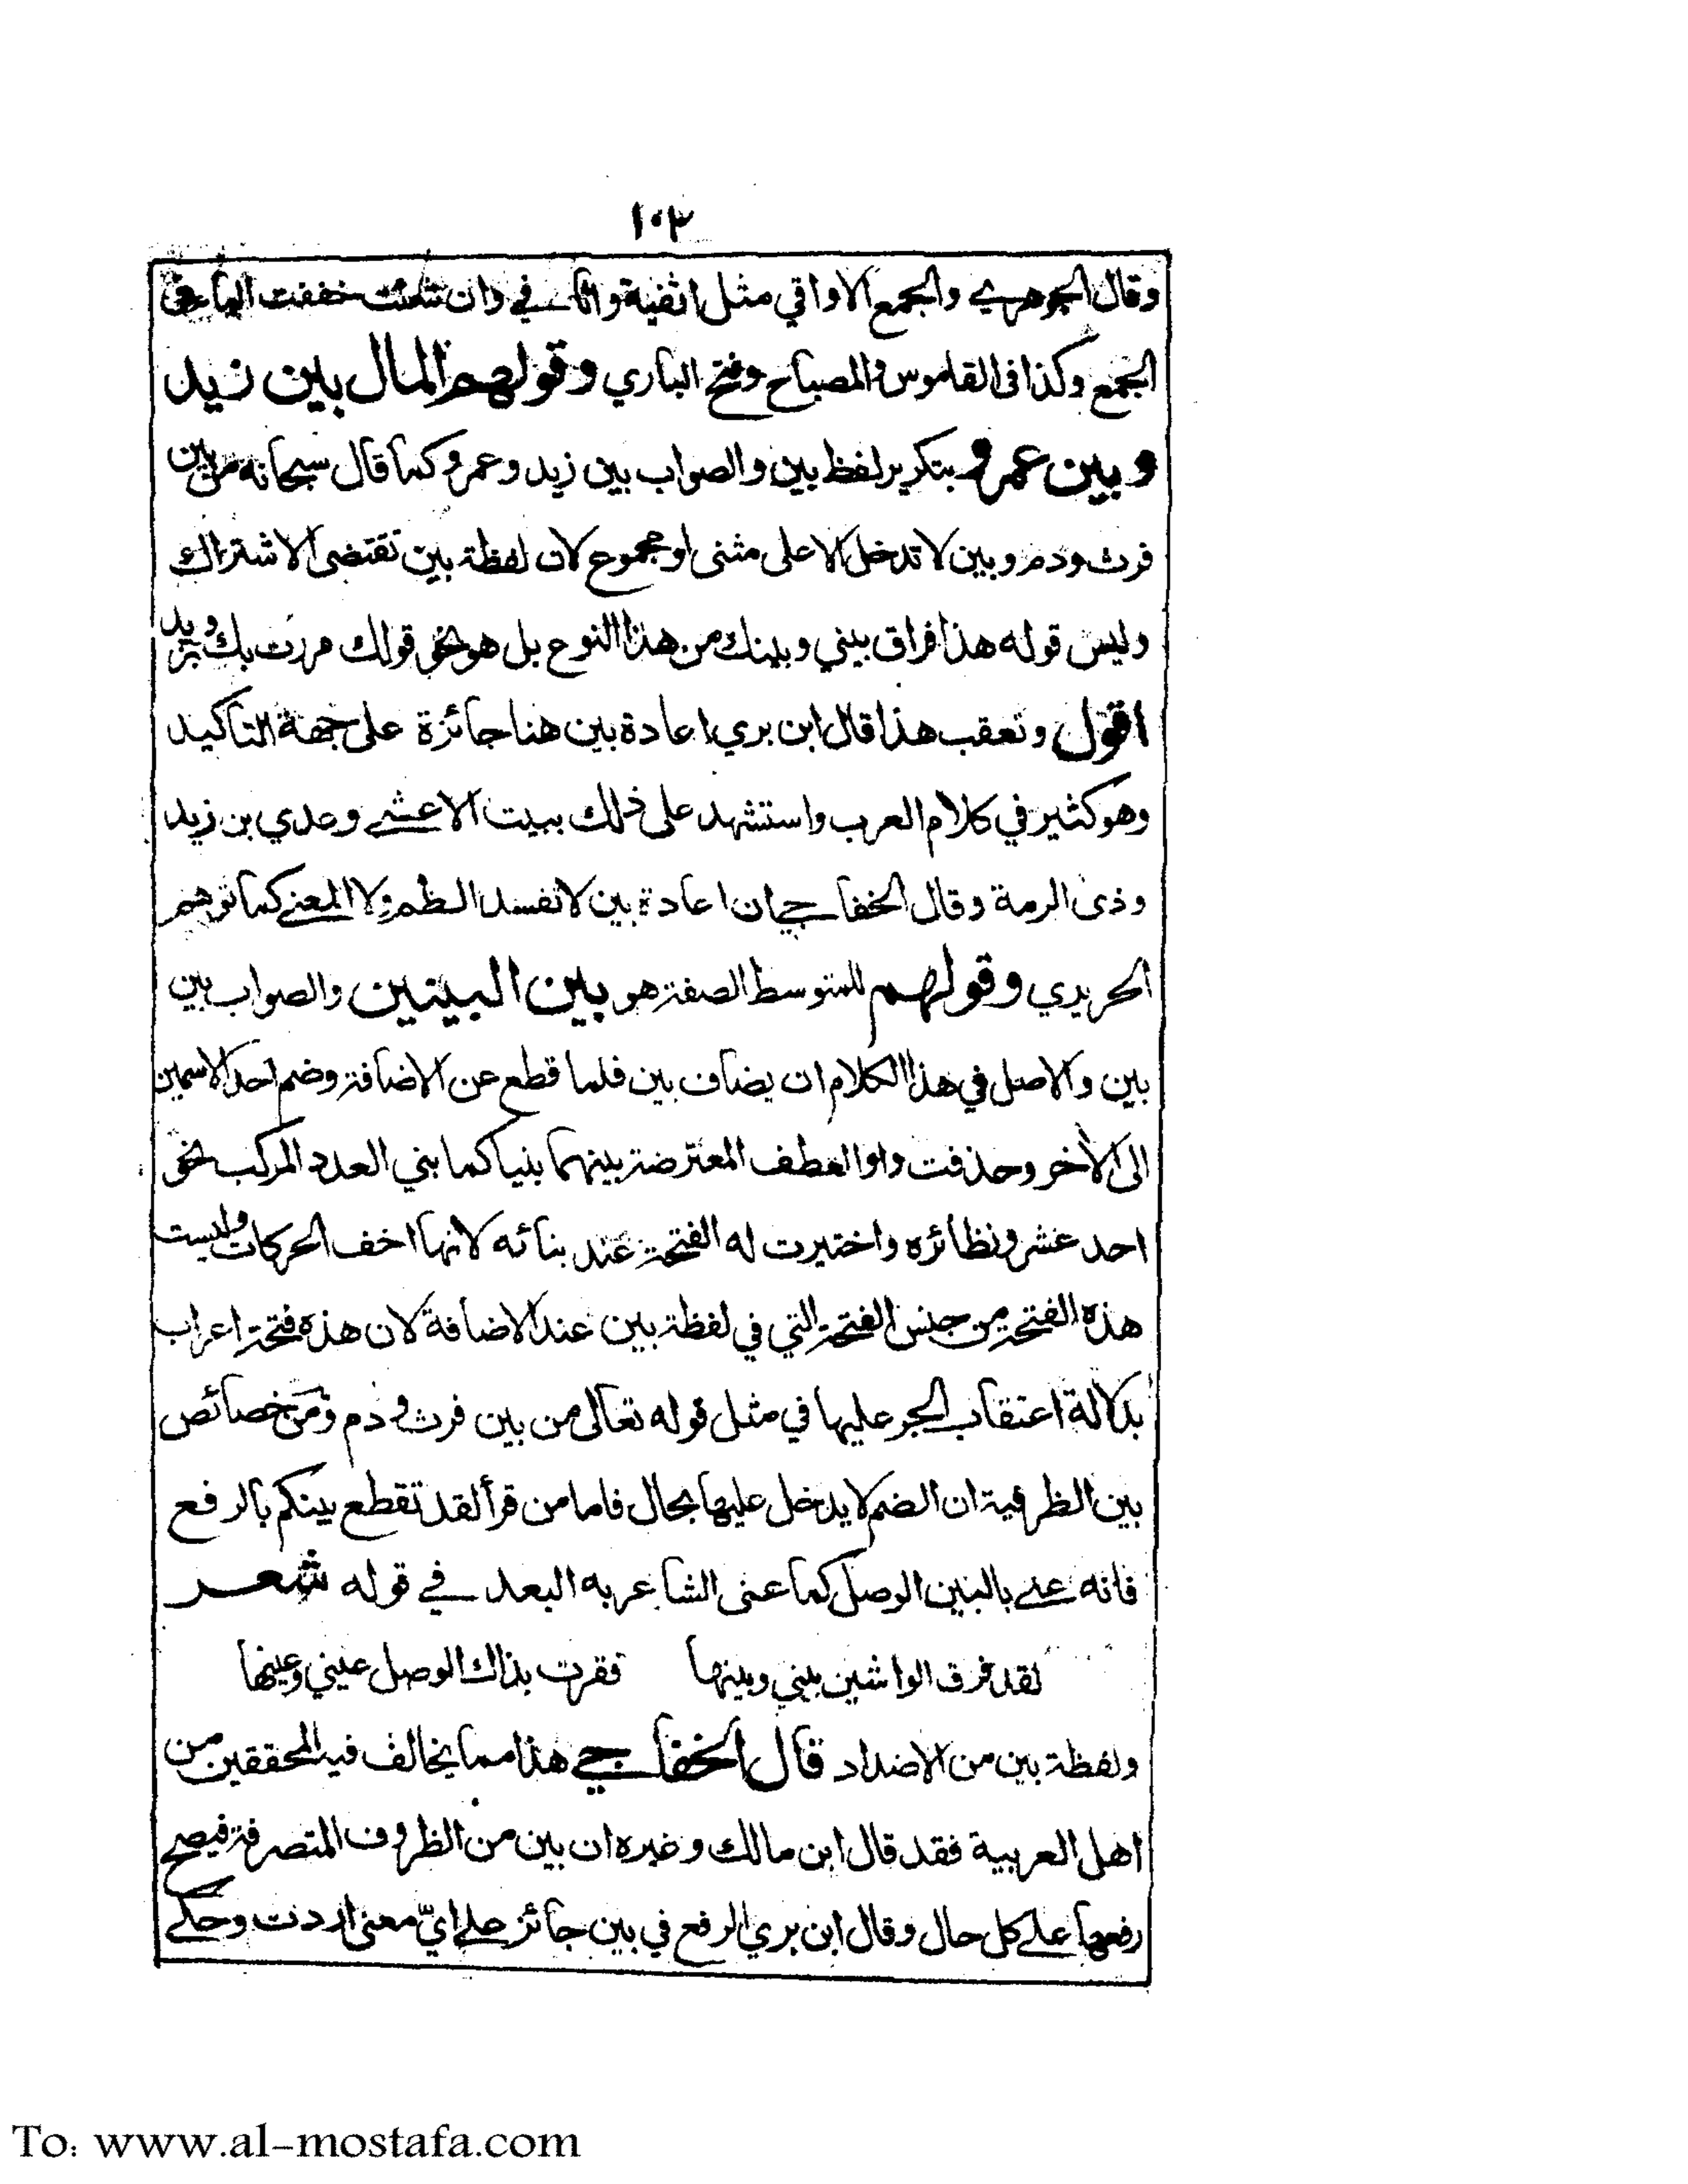 ١٠٣
وقال الجوهري والجمع الاواقي مثل اثفية واثافي وان شئت خففت الياء في
الجمع وكذا في القاموس والمصباح وفتح الباري وقولهم المال بين زيد
وبين عمرو بتكرير لفظ بين والصواب بين زيد وعمرو كما قال سبحانه من بين
فرث ودم وبين لا تدخل الا على مثنى او مجموع لان لفظة بين تقتضى الاشتراك
وليس قوله هذا فراق بيني وبينك من هذا النوع بل هو نحو قولك مررت بك وبزيد
اقول وتعقب هذا قال ابن بري اعادة بين هنا جائزة على جهة التاكيد
وهو كثير في كلام العرب واستشهد على ذلك ببيت الاعشے وعدي بن زيد
وذى الرمة وقال الخفاجي ان اعادة بين لا تفسد النظم ولا المعنے كما توهم
الحريري وقولهم للمتوسط الصفة هو بين البينين والصواب بين
بين والاصل في هذا الكلام ان يضاف بين فلما قطع عن الاضافة وضم احد الاسمين
الى الاخر وحذفت واو العطف المعترضة بينهما بنيا كما بني العدد المركب نحو
احد عشر ونظائره واختيرت له الفتحة عند بنائه لانها اخف الحركات وليست
هذه الفتحة من جنس الفتحة التي في لفظة بين عند الاضافة لان هذه فتحة اعراب
بدلالة اعتقاب الجر عليها في مثل قوله تعالى من بين فرث ودم ومن خصائص
بين الظرفية ان الضم لا يدخل عليها بحال فاما من قرأ لقد تقطع بينكم بالرفع
فانه عنے بالبين الوصل كما عنى الشاعر به البعد في قوله شعر
لقد فرق الواشين بيني وبينها فقرت بذاك الوصل عيني وعينها
ولفظة بين من الاضداد قال الخفاجي هذا مما يخالف فيه المحققين من
اهل العربية فقد قال ابن مالك وغيره ان بين من الظروف المتصرفة فيصح
رفعها علے كل حال وقال ابن بري الرفع في بين جائز علے ايّ معنى اردت وحكے
To: www.al-mostafa.com